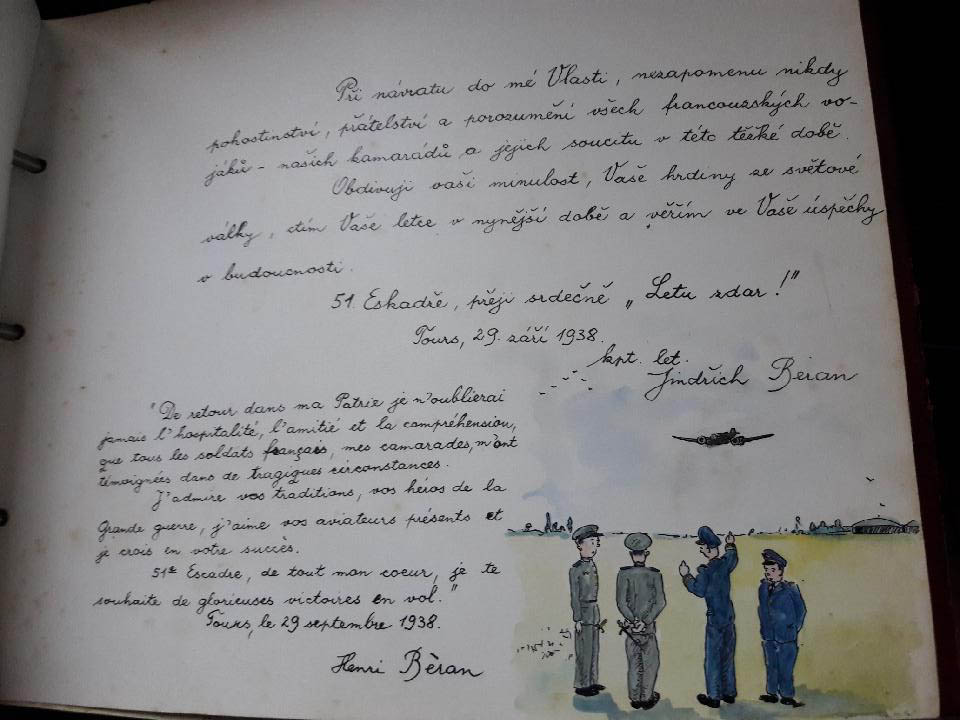 Při návratu do mé Vlasti, nezapomenu nikdy
pohostinství, přátelství a porozumění všech francouzských vo-
jáků - našich kamarádů a jejich soucitu v této těžké době.
Obdivuji vaši minulost, Vaše hrdiny ze světové
války, ctím Vaše letce v nynější době a věřím ve Vaše úspěchy
v budoucnosti.
51. Eskadře, přeji srdečně „Letu zdar!"
Tours, 29. září 1938.
kpt. let.
Jindřich Bèran
"De retour dans ma Patrie je n'oublierai
jamais l'hospitalité, l'amitié et la compréhension,
que tous les soldats français, mes camarades, m'ont
témoignées dans de tragiques circonstances.
J'admire vos traditions, vos héros de la
Grande guerre, j'aime vos aviateurs présents et
je crois en votre succès.
51e Escadre, de tout mon coeur, je te
souhaite de glorieuses victoires en vol."
Tours, le 29 septembre 1938.
Henri Bèran